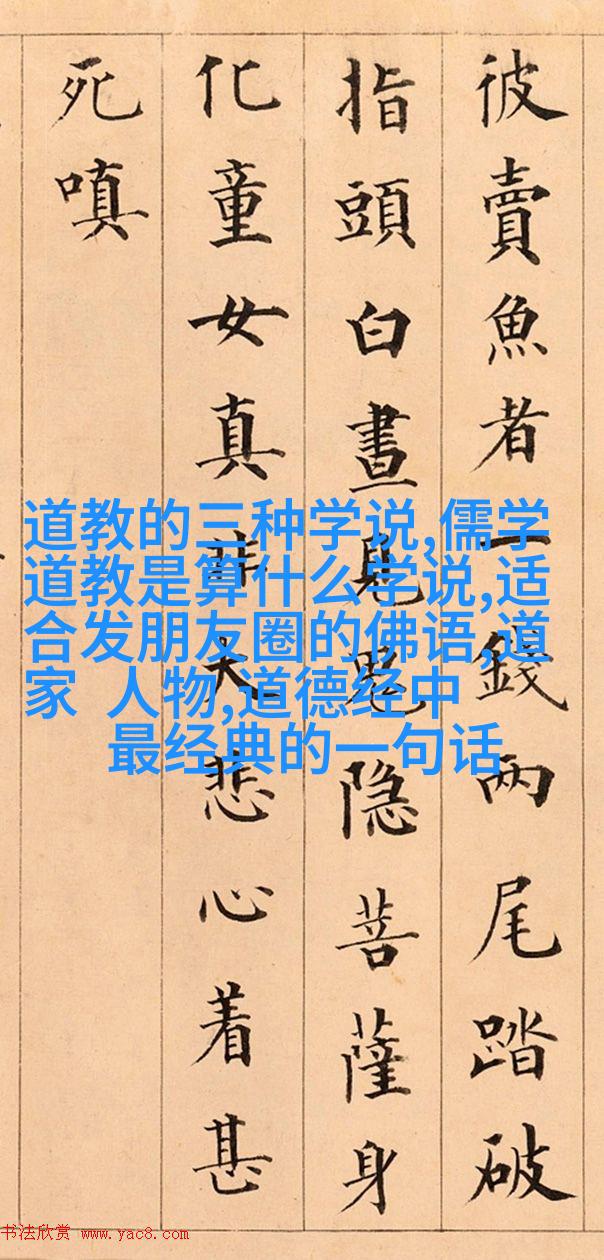 彼賣魚者一錢兩尾踏破
指頭白晝見鬼隐菩薩身
化童女真大悲心着甚
死嗔
道教的三种学说,儒学
道教是算什么学说,适
合发朋友圈的佛语,道
家 人物,道德经中
最经典的一句话
书法欣赏 www.yac8.com